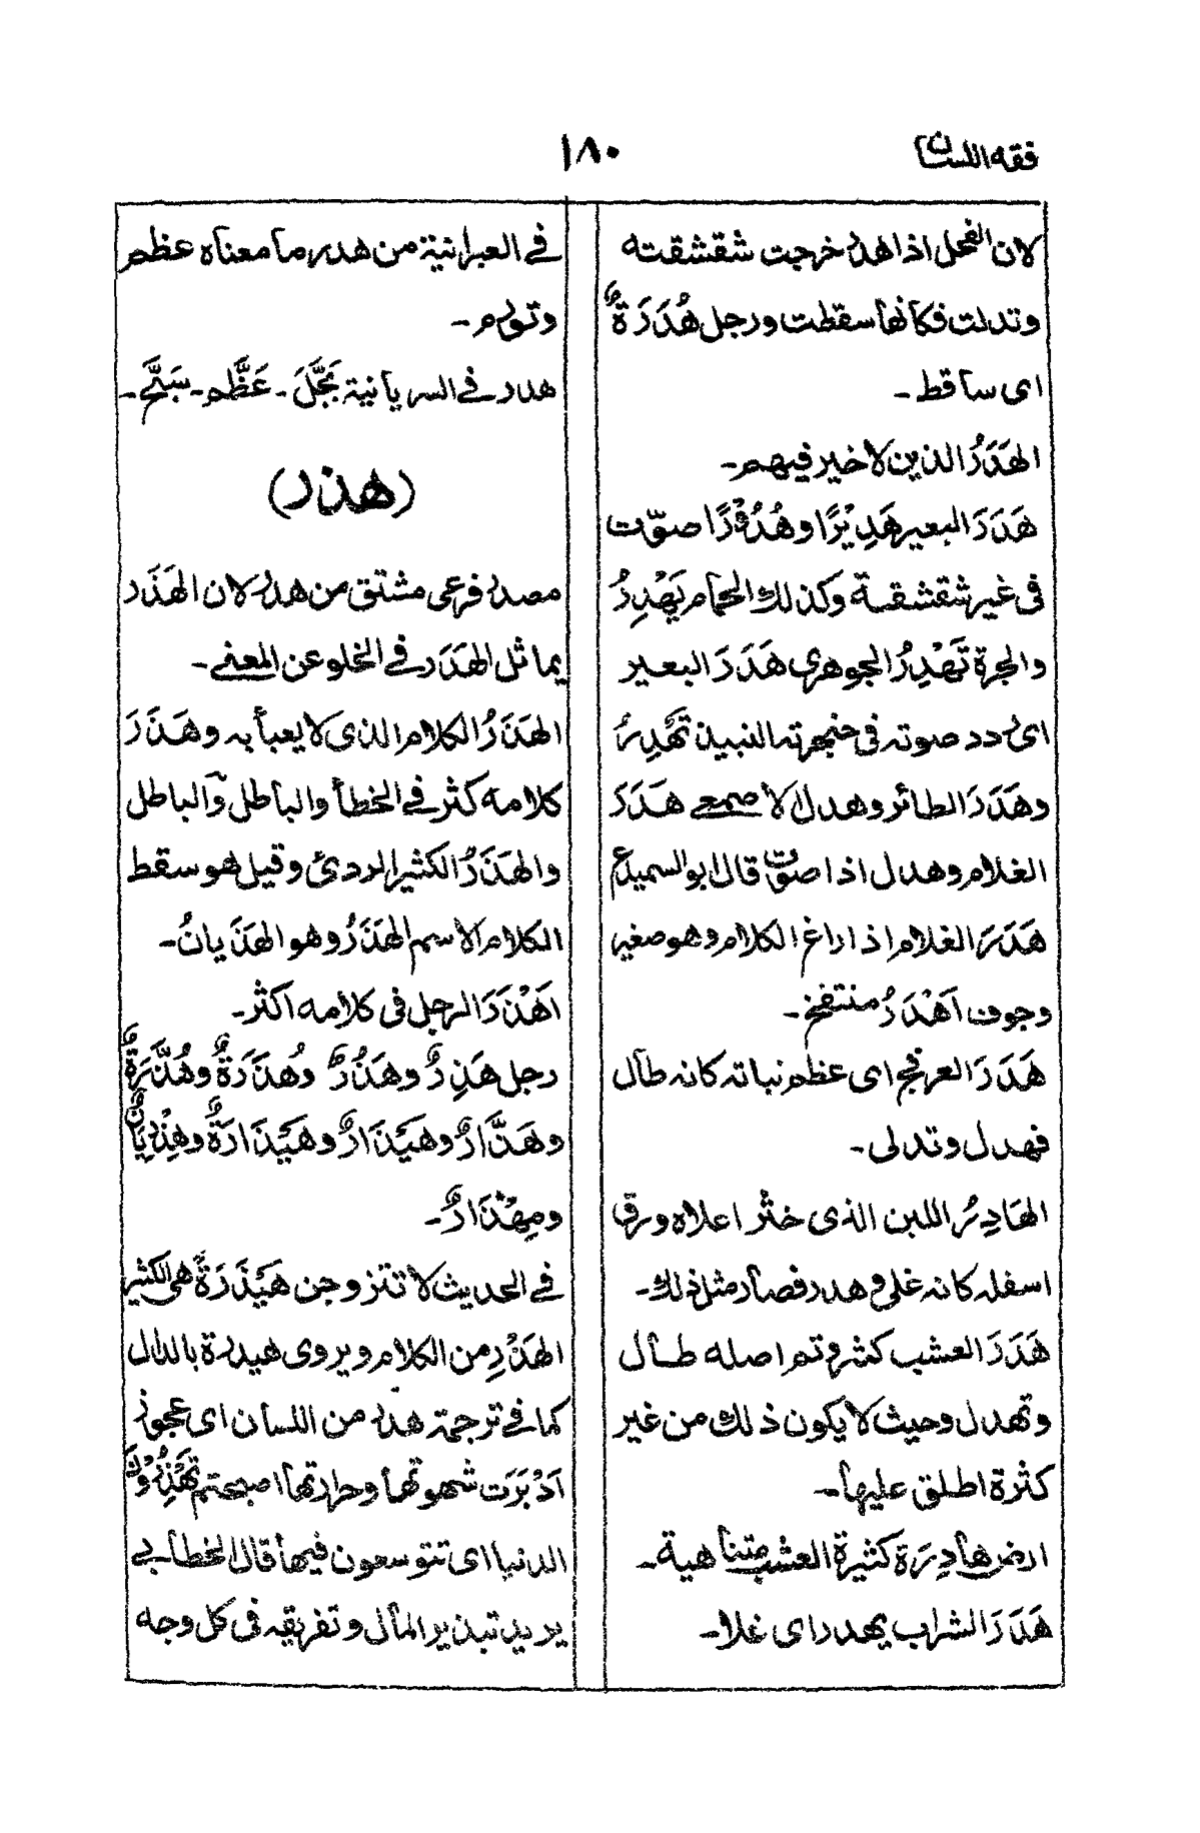 فقه اللسان
١٨٠
لان الفحل اذا هدر خرجت شقشقته
وتدلت فكأنها سقطت ورجل هُدَرَةٌ
اى ساقط ـ
الهَدَرُ الذين لا خير فيهم ـ
هَدَرَ البعير هَدِيْرًا وهُدُوْرًا صوّت
فى غير شقشقة وكذلك الحمام يَهْدِرُ
والجرة تَهْدِرُ الجوهرى هَدَرَ البعير
اى ردد صوته فى حنجرته النبيذ تَهْدِرُ
وهَدَرَ الطائر وهدل الاصمعے هَدَرَ
الغلام وهدل اذا صوّت قال ابو السميدع
هَدَرَ الغلام اذا راغ الكلام وهو صغير
وجوف اَهْدَرُ منتفخ ـ
هَدَرَ العرفج اى عظم نباته كانه طال
فهدل وتدلى ـ
الهَادِرُ اللبن الذى خثر اعلاه ورق
اسفله كانه غلى وهدر فصار مثل ذلك ـ
هَدَرَ العشب كثر وتم اصله طال
وتهدل وحيث لا يكون ذلك من غير
كثرة اطلق عليها ـ
ارض هادِرَة كثيرة العشب متناهية ـ
هَدَرَ الشراب يهدر اى غلا ـ
فے العبرانية من هدر ما معناه عظم
وتورم ـ
هدر فے السريانية بَجَّلَ ـ عَظَّم ـ سَبَّح ـ
(هذر)
مصدر فرعى مشتق من هدر لان الهَذَر
يماثل الهَدَر فے الخلو عن المعنے ـ
الهَذَرُ الكلام الذى لا يعبأ به وهَذَرَ
كلامه كثر فے الخطأ والباطل والباطل
والهَذَرُ الكثير الردئ وقيل هو سقط
الكلام الاسم الهَذَرُ وهو الهَذَيانُ ـ
اَهْذَرَ الرجل فى كلامه اكثر ـ
رجل هَذِرٌ وهَذُرٌ وهُذَرَةٌ وهُذُّرَةٌ
وهَذَّارٌ وهَيْذَارٌ وهَيْذَارَةٌ وهِذْرِيَانٌ
ومِهْذَارٌ ـ
فے الحديث لا تتزوجن هَيْذَرَةً هى الكثير
الهَذْرِ من الكلام ويروى هيدرة بالدال
كما فے ترجمة هدر من اللسان اى عجوز
اَدْبَرَت شهوتها وحرارتها اصبحتم تَهْذِرُوْنَ
الدنيا اى تتوسعون فيها قال الخطابے
يريد تبذير المال وتفريقه فى كل وجه